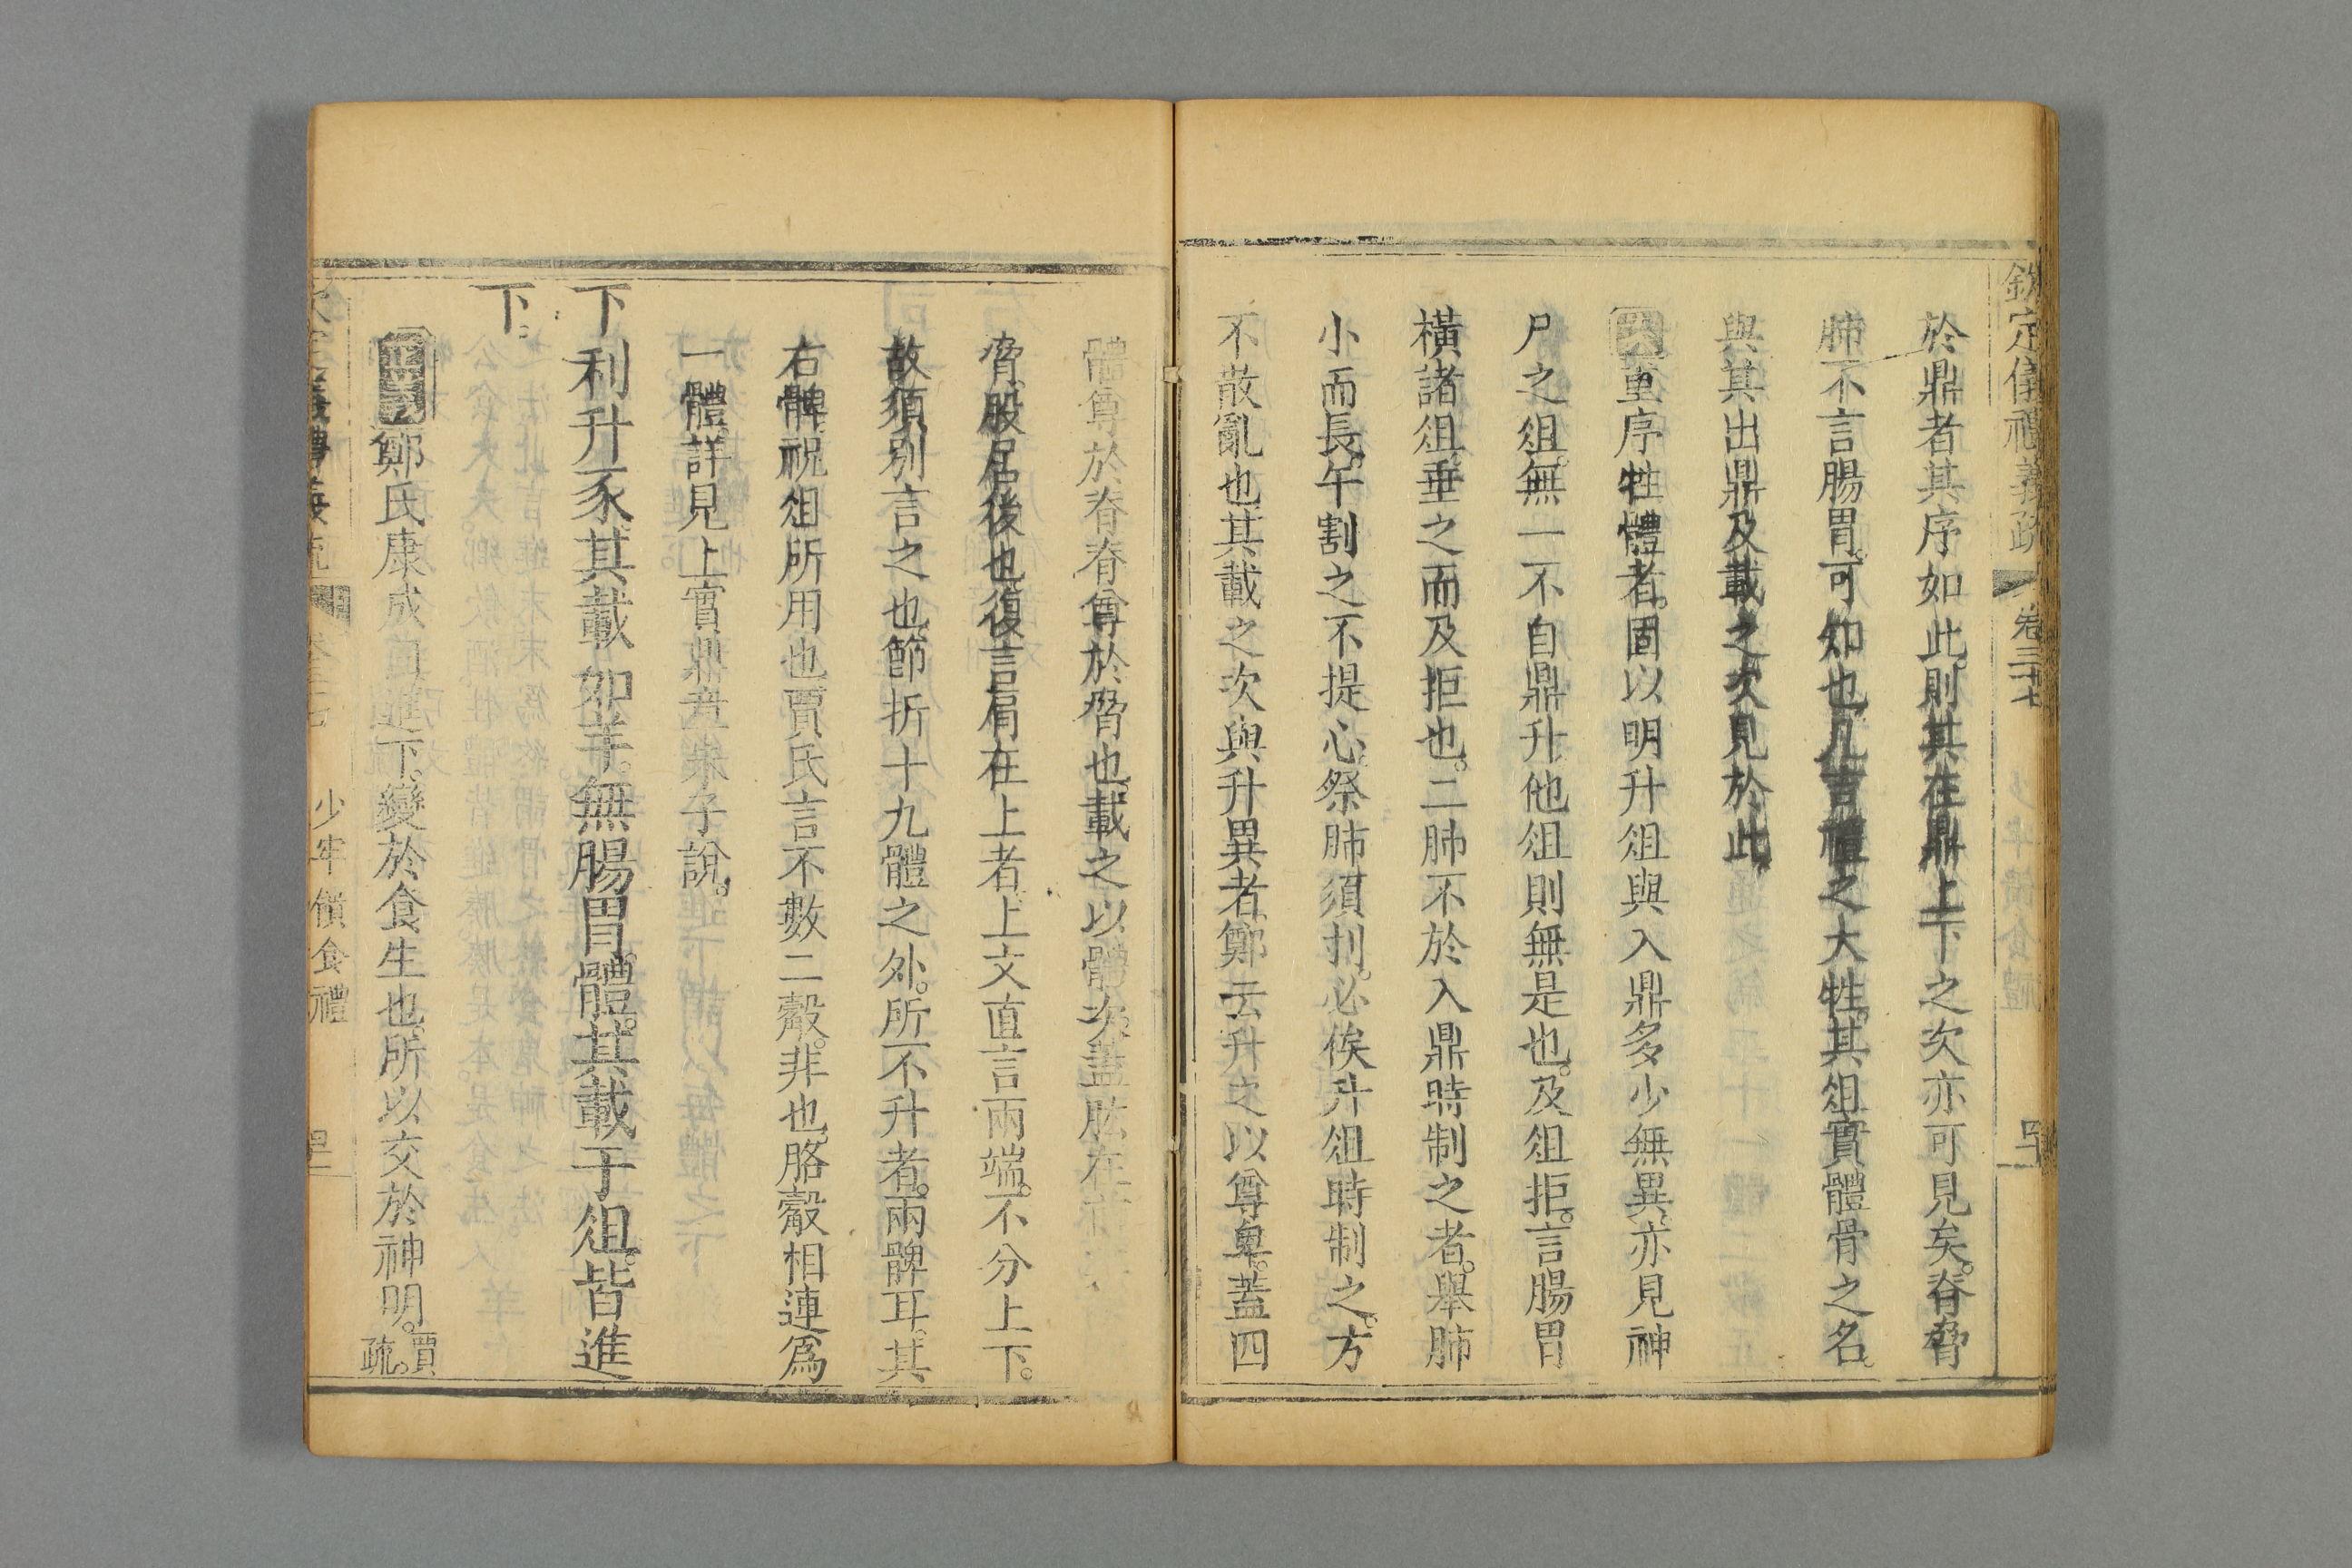 欽定儀禮義疏 卷三十七 少牢饋食禮
於鼎者其序如此則其在鼎上下之次亦可見矣。脊脅
肺不言腸胃。可知也凡吉禮之大牲。其俎實體骨之名。
與其出鼎及載之次見於此
重序牲體者。固以明升俎與入鼎多少無異。亦見神
尸之俎。無一不自鼎升他俎則無是也。及俎拒。言腸胃
橫諸俎。垂之而及拒也。二肺不於入鼎時制之者。舉肺
小而長。午割之不提心。祭肺須刌。必俟升俎時制之。方
不散亂也其載之次與升異者。鄭云升之以尊卑。蓋四
體尊於脊脊尊於脅也。載之以體次。蓋肱在
脅。股居後也。復言肩在上者。上文直言兩端。不分上下。
故須別言之也。節折十九體之外。所不升者。兩髀耳。其
右髀。祝俎所用也。賈氏言不數二觳。非也。胳觳相連爲
一體。詳見上實鼎章朱子說。
下利升豕。其載如羊。無腸胃。體。其載于俎。皆進
下。
鄭氏康成曰進下。變於食生也。所以交於神明。賈
疏。
少牢饋食禮